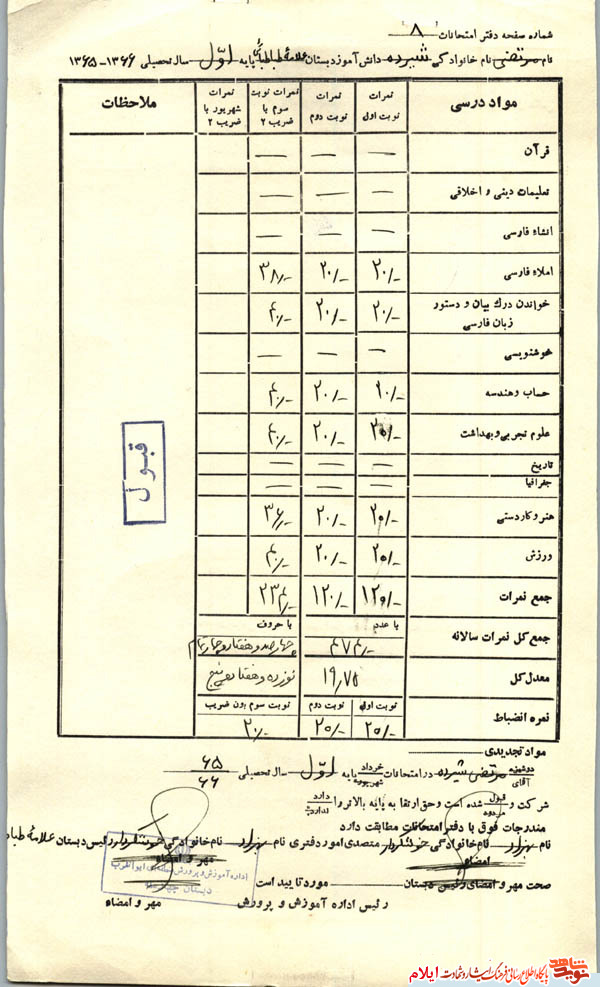 شماره صفحه دفتر امتحانات ۸
نام مرتضی نام خانوادگی شیرده دانش آموز دبستان علامهٔ طباطبائی پایه اوّل سال تحصیلی ۱۳۶۶-۱۳۶۵
مواد درسی نمرات نوبت اول نمرات نوبت دوم نمرات نوبت سوم با ضریب ۲ نمرات شهریور با ضریب ۲ ملاحظات
قرآن — — —
تعلیمات دینی و اخلاقی — — —
انشاء فارسی — — —
املاء فارسی ۲۰/- ۲۰/- ۳۸/-
خواندن درك بیان و دستور زبان فارسی ۲۰/- ۲۰/- ۴۰/-
خوشنویسی — — —
حساب و هندسه ۲۰/- ۲۰/- ۴۰/-
علوم تجربی و بهداشت ۲۰/- ۲۰/- ۴۰/-
تاریخ — — —
جغرافیا — — —
هنر و کاردستی ۲۰/- ۲۰/- ۳۶/-
ورزش ۲۰/- ۲۰/- ۴۰/-
جمع نمرات ۱۲۰/- ۱۲۰/- ۲۳۴/-
جمع کل نمرات سالانه با عدد ۴۷۴/- با حروف چهارصد و هفتاد و چهار تمام
معدل کل ۱۹/۷۵ نوزده و هفتاد و پنج
نمره انضباط نوبت اول ۲۰/- نوبت دوم ۲۰/- نوبت سوم بدون ضریب ۲۰/-
قبول
مواد تجدیدی
دوشیزه آقای مرتضی شیرده در امتحانات خرداد شهریور پایه اوّل سال تحصیلی ۶۵ ۶۶
شرکت و قبول مردود شده است و حق ارتقا به پایه بالاتر را دارد ندارد
مندرجات فوق با دفتر امتحانات مطابقت دارد
نام نام خانوادگی متصدی امور دفتری نام نام خانوادگی رئیس دبستان علامهٔ طباط
امضاء مهر و امضاء
اداره آموزش و پرورش
دبستان
صحت مهر و امضای رئیس دبستان مورد تایید است
رئیس اداره آموزش و پرورش مهر و امضاء
نوید شاهد پایگاه اطلاع رسانی فرهنگ ایثار و شهادت ایلام